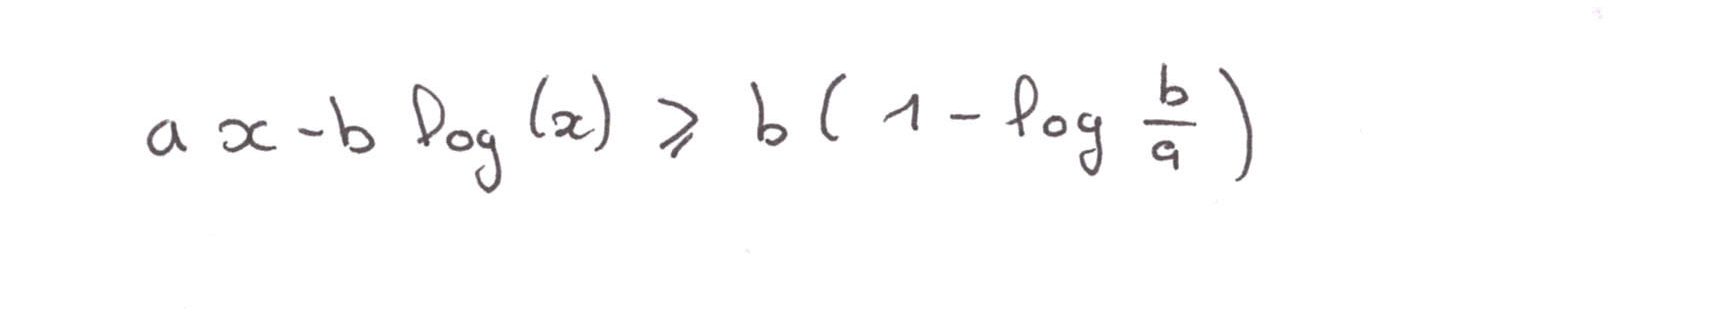 a x - b log(x) ⩾ b(1 - log b/a)